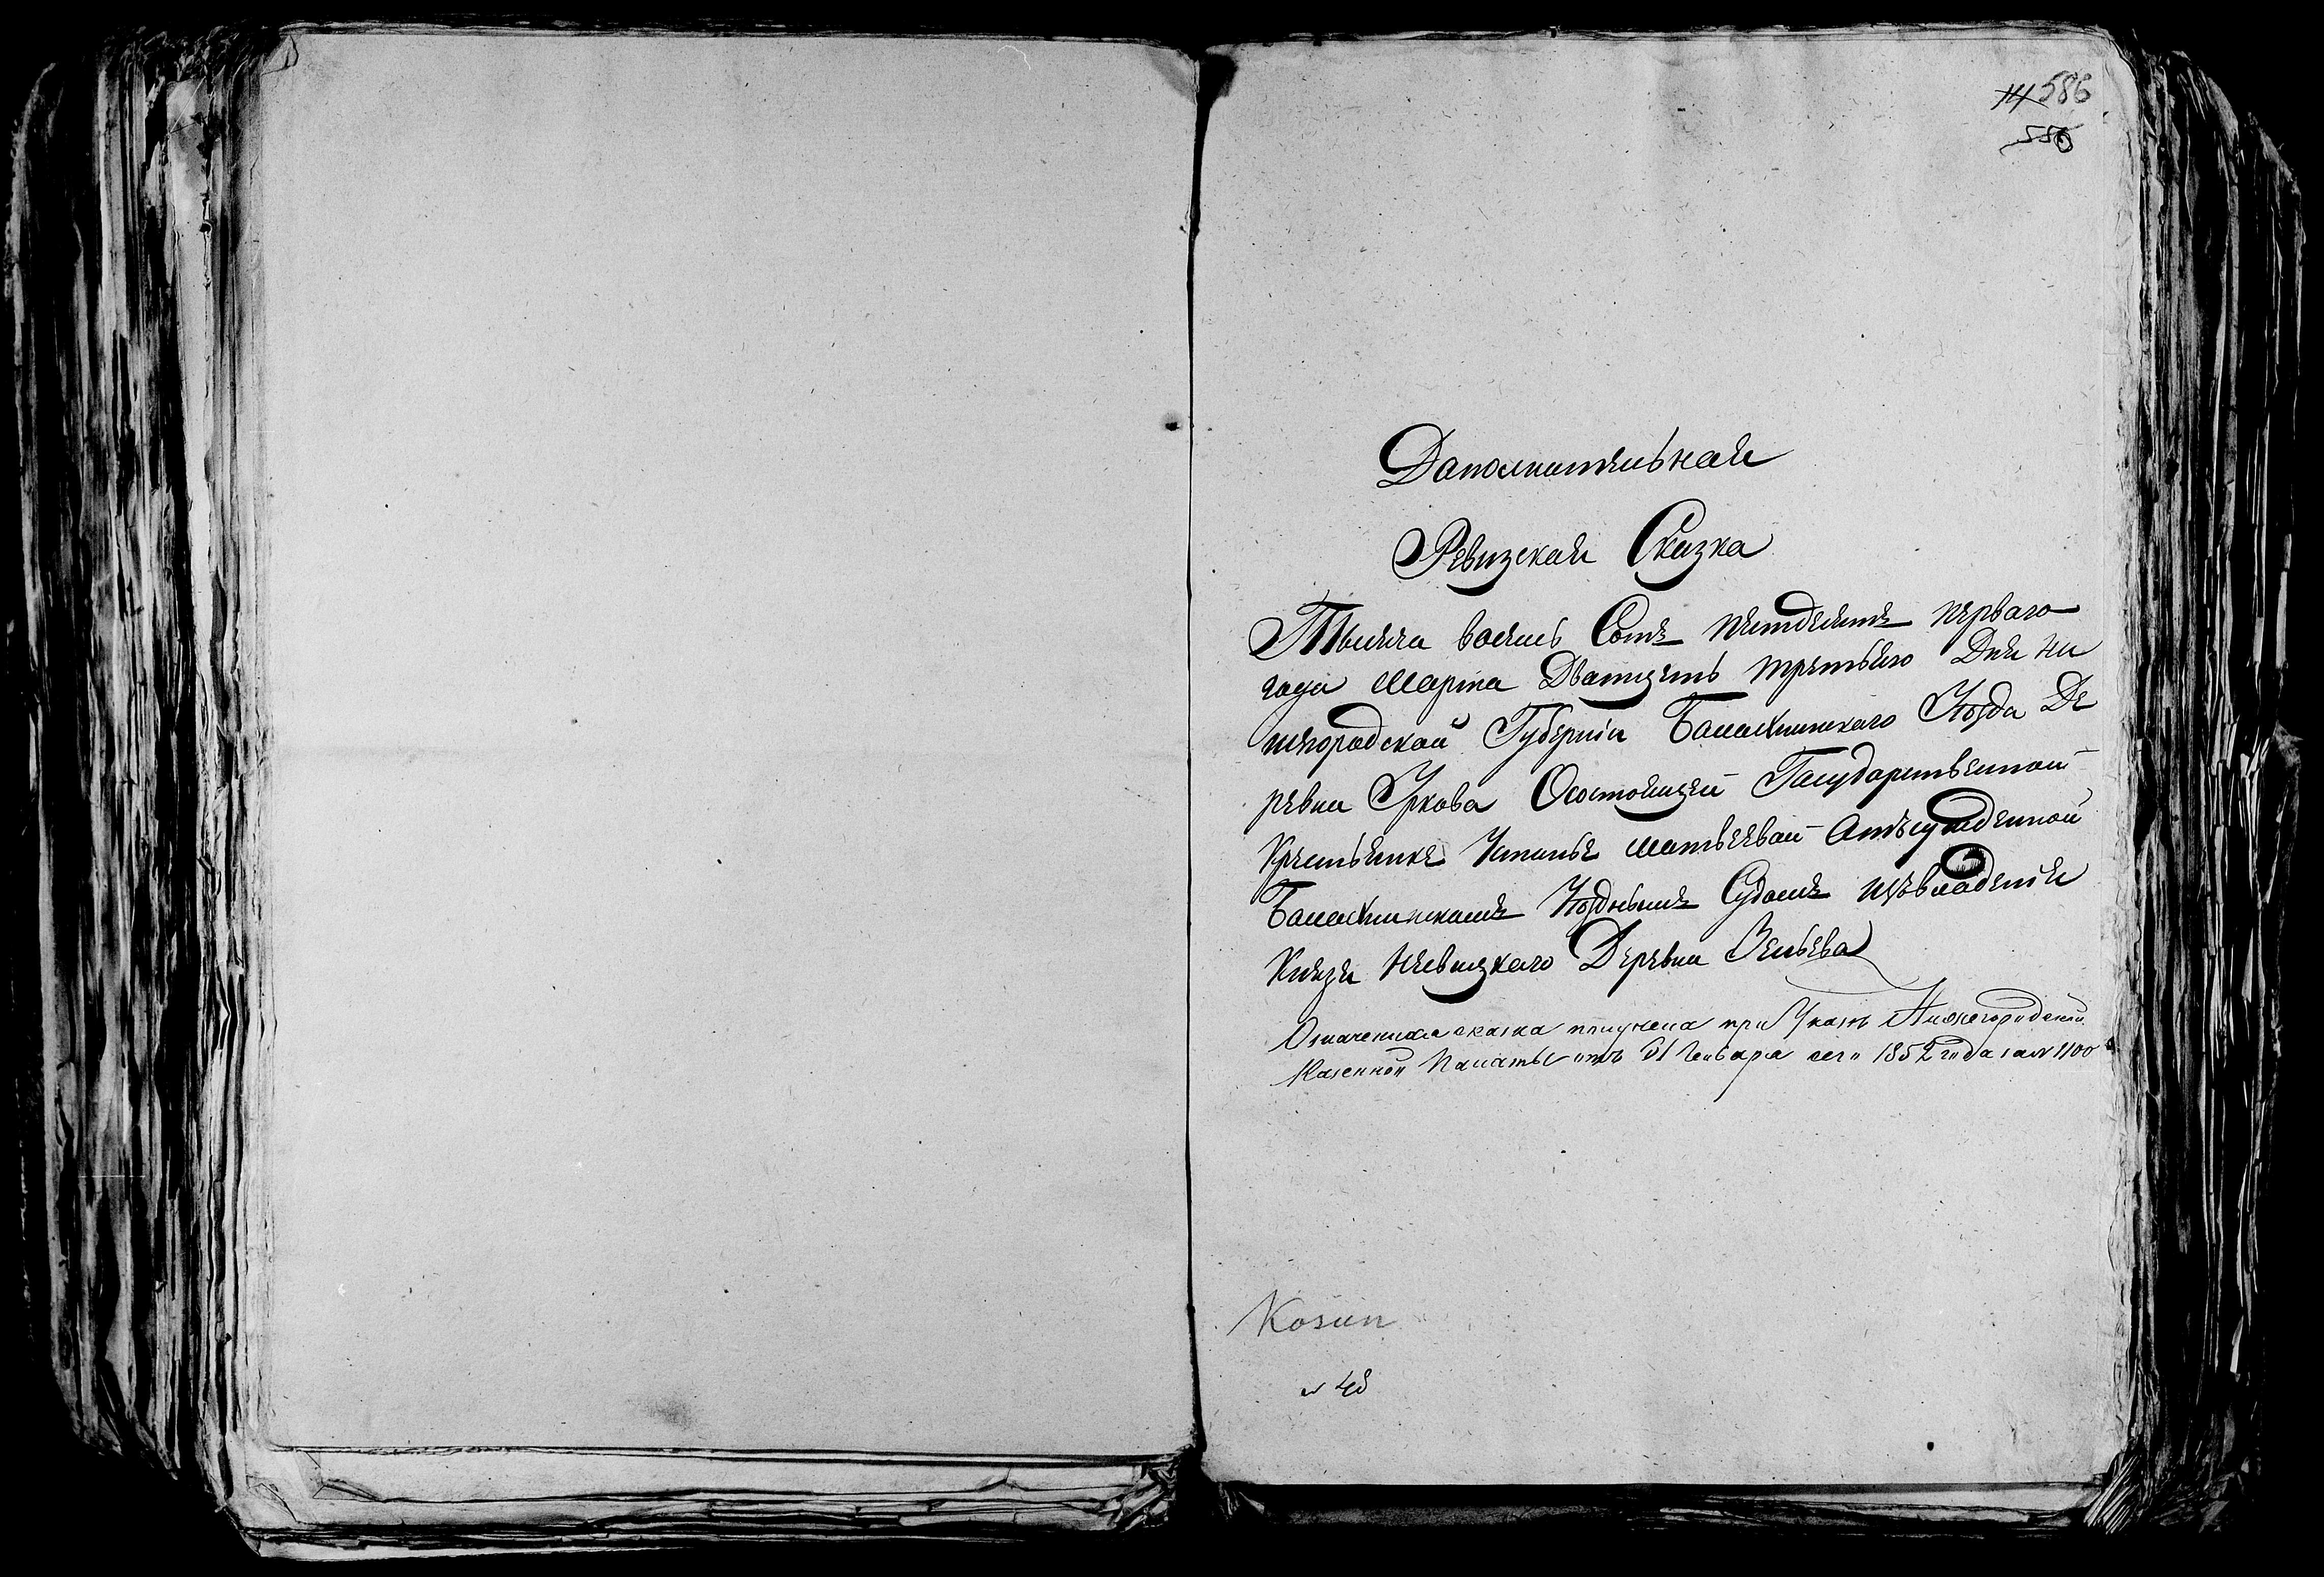 14 586
550
Дополнительная
Ревизская Сказка
Тысяча восемь Сотъ пятдесятъ перваго
года Марта Дватцеть третьяго Дня ни
жегородской Губерніи Балахнинскаго Уѣзда Де
ревни Юркова Осостоящей Государственной
Крестьянке Устинье Матвеевой Отъсужденной
Балахнинскимъ Уѣзднымъ Судомъ изъ владенія
Князя Деревни
Означенная сказка получена при Указѣ Нижегородской
Казенной Палаты отъ 31 Генваря сего 1852 года за № 1100
Козин
№ 48